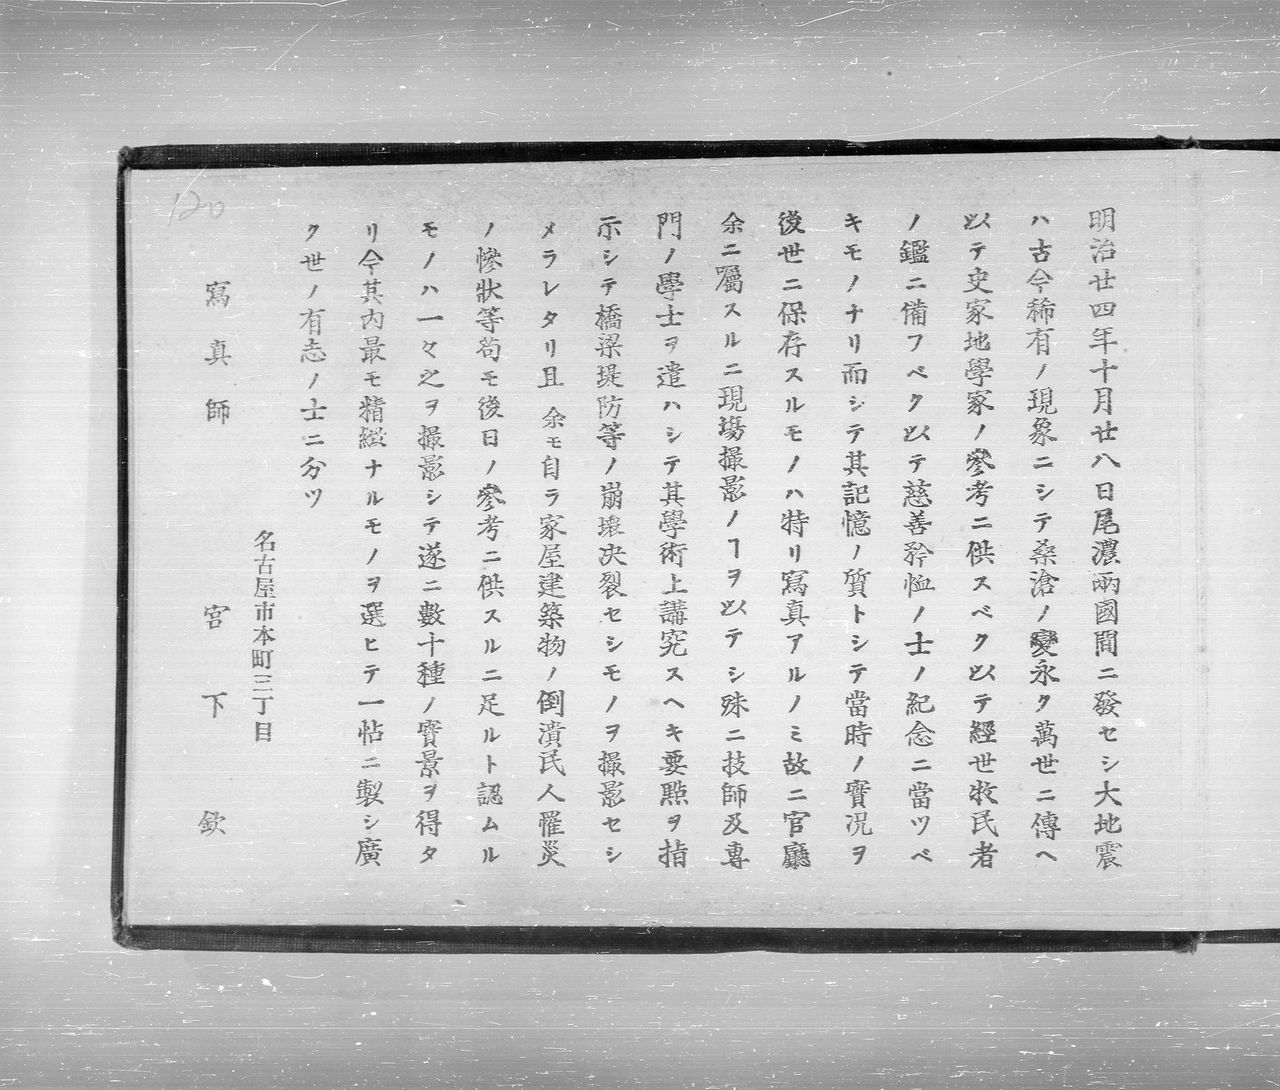 明治廿四年十月廿八日尾濃兩國間ニ發セシ大地震
ハ古今稀有ノ現象ニシテ桑滄ノ變永ク萬世ニ傳ヘ
以テ史家地學家ノ參考ニ供スベク以テ經世牧民者
ノ鑑ニ備フベク以テ慈善矜恤ノ士ノ紀念ニ當ツベ
キモノナリ而シテ其記憶ノ質トシテ當時ノ實況ヲ
後世ニ保存スルモノハ特リ寫真アルノミ故ニ官廳
余ニ囑スルニ現塲撮影ノヿヲ以テシ殊ニ技師及專
門ノ學士ヲ遣ハシテ其學術上講究スヘキ要點ヲ指
示シテ橋梁堤防等ノ崩壞决裂セシモノヲ撮影セシ
メラレタリ且余モ自ラ家屋建築物ノ倒潰民人罹災
ノ慘狀等苟モ後日ノ參考ニ供スルニ足ルト認ムル
モノハ一々之ヲ撮影シテ遂ニ數十種ノ實景ヲ得タ
リ今其内最モ精緻ナルモノヲ選ヒテ一帖ニ製シ廣
ク世ノ有志ノ士ニ分ツ
名古屋市本町三丁目
寫真師 宮下欽
120